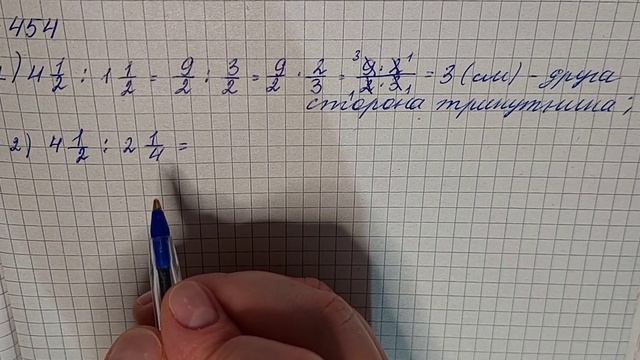 454
1) 4 1/2 : 1 1/2 = 9/2 : 3/2 = 9/2 · 2/3 = 9·2/2·3 = 3 (см) - друга
сторона трикутника;
2) 4 1/2 : 2 1/4 =